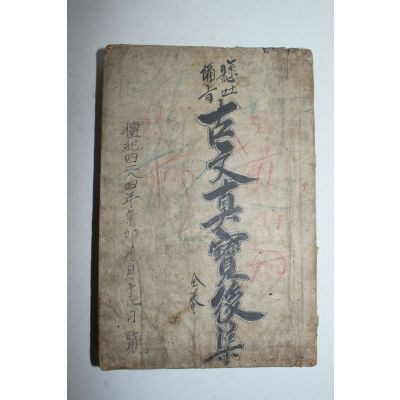 懸吐
備旨
古文真寶後集
全
檀紀四二八四年辛卯九月十五日